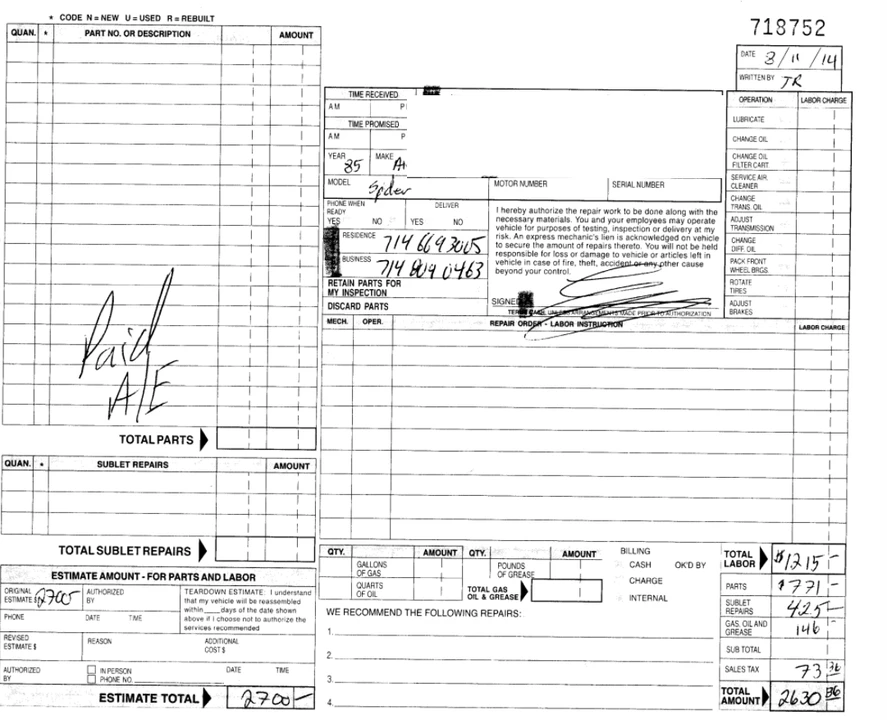 * CODE N=NEW U=USED R=REBUILT
718752
QUAN. * PART NO. OR DESCRIPTION AMOUNT
DATE 3/11/14
WRITTEN BY JR
TIME RECEIVED
AM P
TIME PROMISED
AM P
YEAR 85 MAKE
MODEL Spder MOTOR NUMBER SERIAL NUMBER
PHONE WHEN READY DELIVER
YES NO YES NO
RESIDENCE 714 669 3005
BUSINESS 714 809 0463
RETAIN PARTS FOR
MY INSPECTION
DISCARD PARTS
I hereby authorize the repair work to be done along with the
necessary materials. You and your employees may operate
vehicle for purposes of testing, inspection or delivery at my
risk. An express mechanic's lien is acknowledged on vehicle
to secure the amount of repairs thereto. You will not be held
responsible for loss or damage to vehicle or articles left in
vehicle in case of fire, theft, accident or any other cause
beyond your control.
SIGNED
TERMS CASH UNLESS ARRANGEMENTS MADE PRIOR TO AUTHORIZATION
OPERATION LABOR CHARGE
LUBRICATE
CHANGE OIL
CHANGE OIL
FILTER CART.
SERVICE AIR
CLEANER
CHANGE
TRANS. OIL
ADJUST
TRANSMISSION
CHANGE
DIFF. OIL
PACK FRONT
WHEEL BRGS.
ROTATE
TIRES
ADJUST
BRAKES
MECH. OPER. REPAIR ORDER - LABOR INSTRUCTION LABOR CHARGE
Paid
A/E
TOTAL PARTS
QUAN. * SUBLET REPAIRS AMOUNT
TOTAL SUBLET REPAIRS
ESTIMATE AMOUNT - FOR PARTS AND LABOR
ORIGINAL
ESTIMATE $ 2700
AUTHORIZED
BY
PHONE DATE TIME
TEARDOWN ESTIMATE: I understand
that my vehicle will be reassembled
within ____ days of the date shown
above if I choose not to authorize the
services recommended
REVISED
ESTIMATE $
REASON ADDITIONAL
COST $
AUTHORIZED
BY
IN PERSON DATE TIME
PHONE NO.
ESTIMATE TOTAL 2700-
QTY. AMOUNT QTY. AMOUNT
GALLONS
OF GAS
POUNDS
OF GREASE
QUARTS
OF OIL
TOTAL GAS
OIL & GREASE
BILLING
CASH OK'D BY
CHARGE
INTERNAL
WE RECOMMEND THE FOLLOWING REPAIRS:
1.
2.
3.
4.
TOTAL
LABOR $1215-
PARTS $771-
SUBLET
REPAIRS 425-
GAS, OIL AND
GREASE 146
SUB TOTAL
SALES TAX 73 36
TOTAL
AMOUNT 2630 36